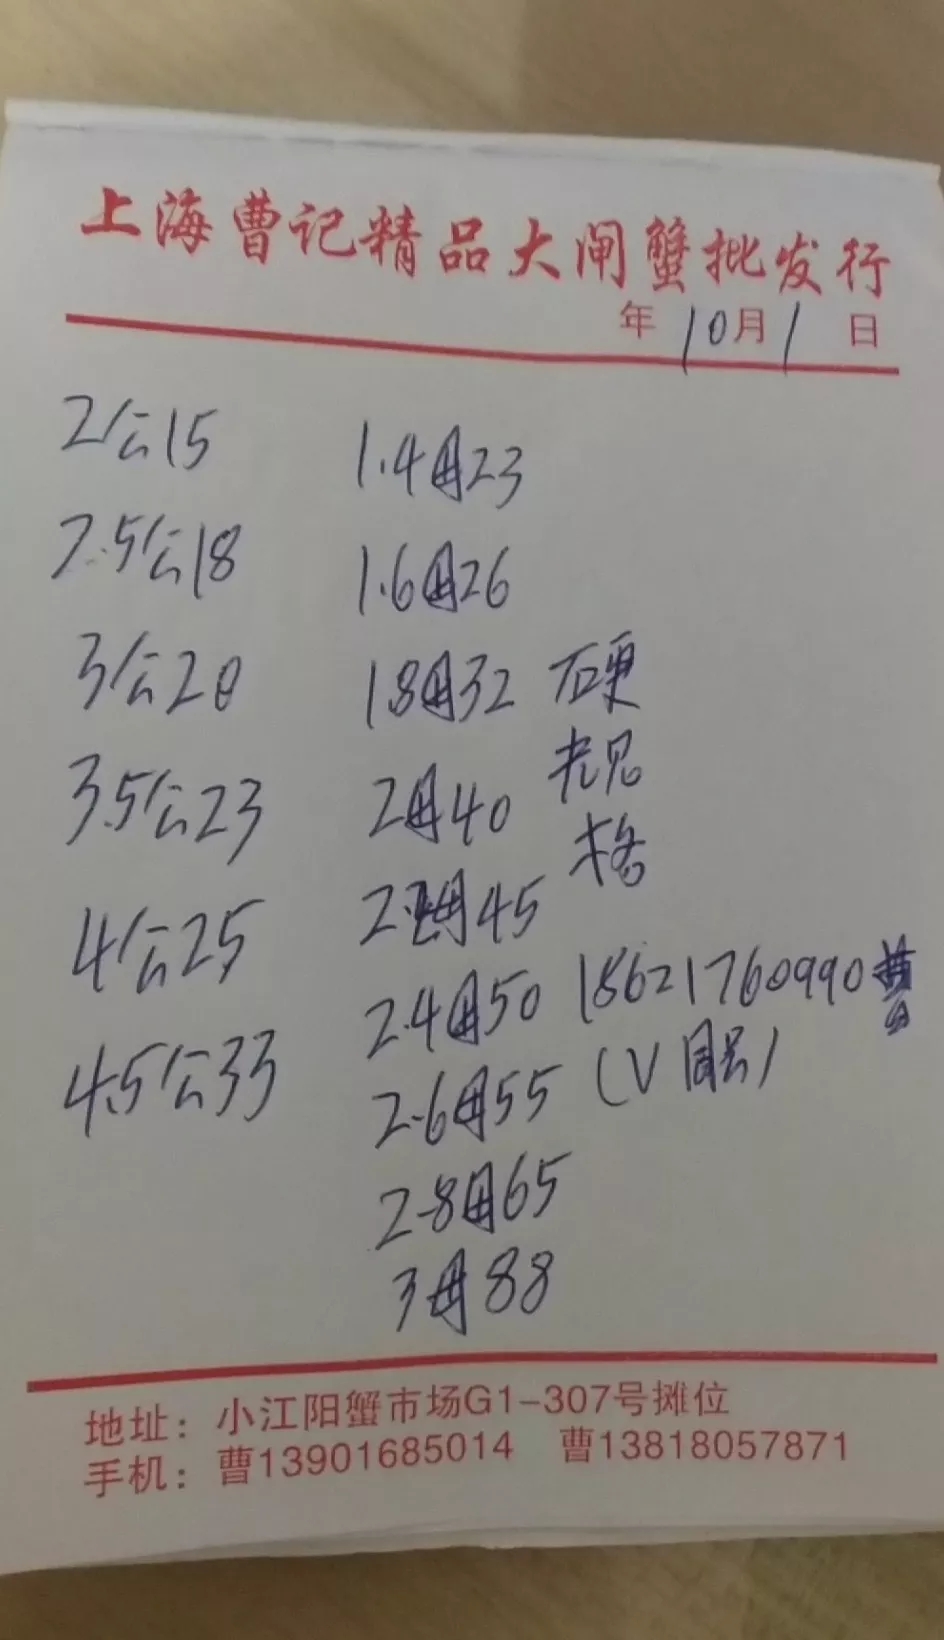 上海曹记精品大闸蟹批发行
年10月1日
2公15 1.4母23
2.5公18 1.6母26
3公20 1.8母32 硬
3.5公23 2母40 规
格
4公25 2.2母45
2.4母50 18621760990曹
4.5公33 2.6母55 (V同号)
2.8母65
3母88
地址：小江阳蟹市场G1-307号摊位
手机：曹13901685014 曹13818057871